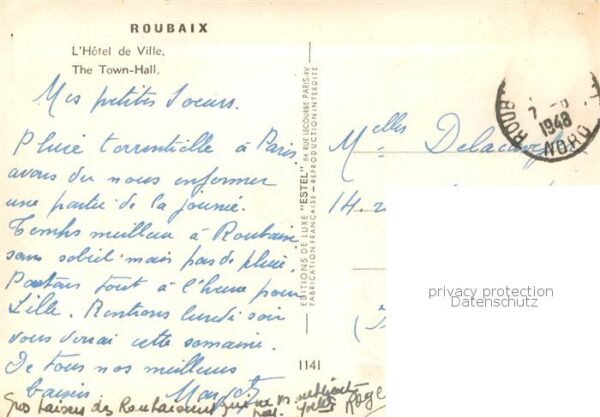 ROUBAIX
L'Hôtel de Ville.
The Town-Hall.
Mes petites Soeurs.
Pluie torrentielle à Paris
avons du nous enfermer
une partie de la journée.
Temps meilleur à Roubaix
sans soleil mais pas de pluie.
Partons tout à l'heure pour
Lille. Rentrons lundi soir
vous verrai cette semaine.
De tous nos meilleurs
baisers Margot
Gros baisers des Roubaisiens
EDITIONS DE LUXE "ESTEL" 84, RUE LECOURBE PARIS.XV
FABRICATION FRANÇAISE — REPRODUCTION INTERDITE
1141
ROUBAIX
7
1948
NORD
Melles
14
privacy protection
Datenschutz